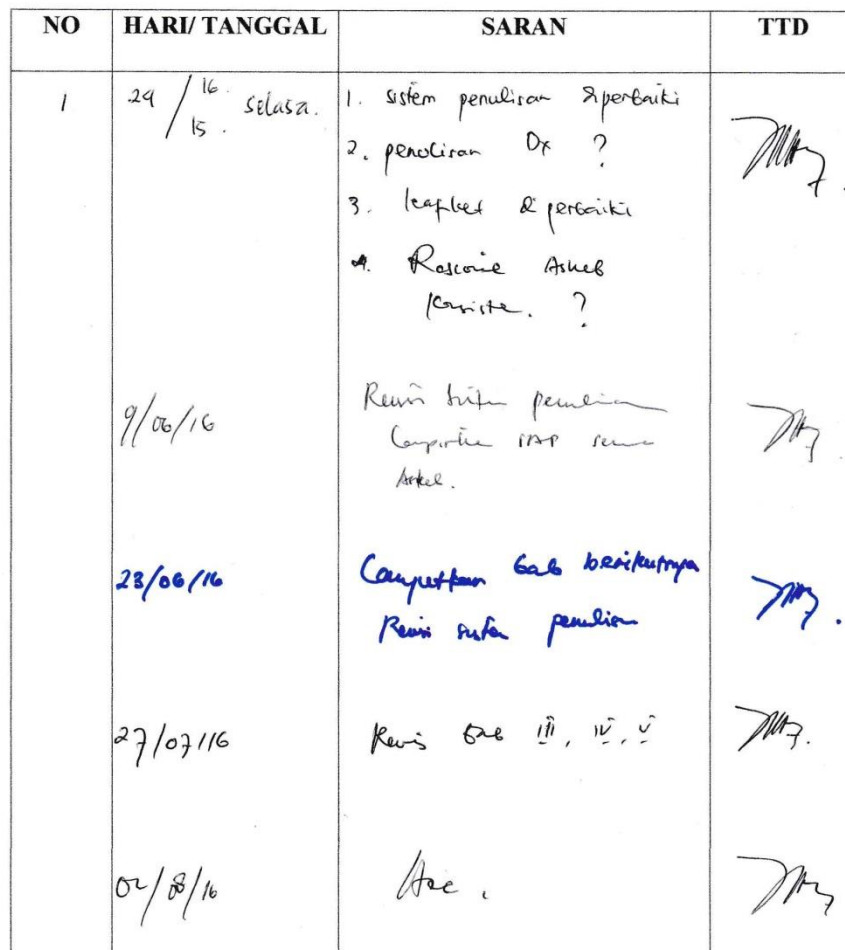 NO HARI/ TANGGAL SARAN TTD
1 24/16 15. Selasa.
1. sistem penulisan diperbaiki
2. penulisan Dx ?
3. leaflet diperbaiki
4. Askeb
?
9/06/16
Revisi sistem penulisan
SAP
Askeb.
23/06/16
Lanjutkan bab berikutnya
Revisi sistem penulisan
27/07/16
Revisi Bab III, IV, V
02/08/16
Acc.